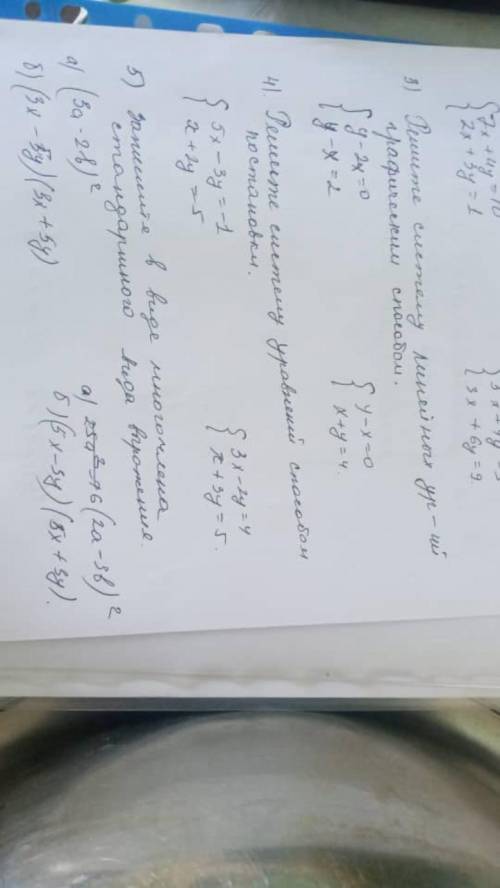 2x + 3y = 1
3x + 6y = 9.
3) Решите систему линейных ур-ий
графическим способом.
{ y - 2x = 0
y - x = 2
{ y - x = 0
x + y = 4.
4). Решите систему уравнений способом
постановки.
{ 5x - 3y = -1
x + 2y = -5
{ 3x - 2y = 4
x + 3y = 5.
5) Запишите в виде многочлена
стандартного вида выражения.
а) (3a - 2b)²
а) (2a - 3b)²
б) (3x - 5y)(3x + 5y)
б) (5x - 3y)(8x + 3y).